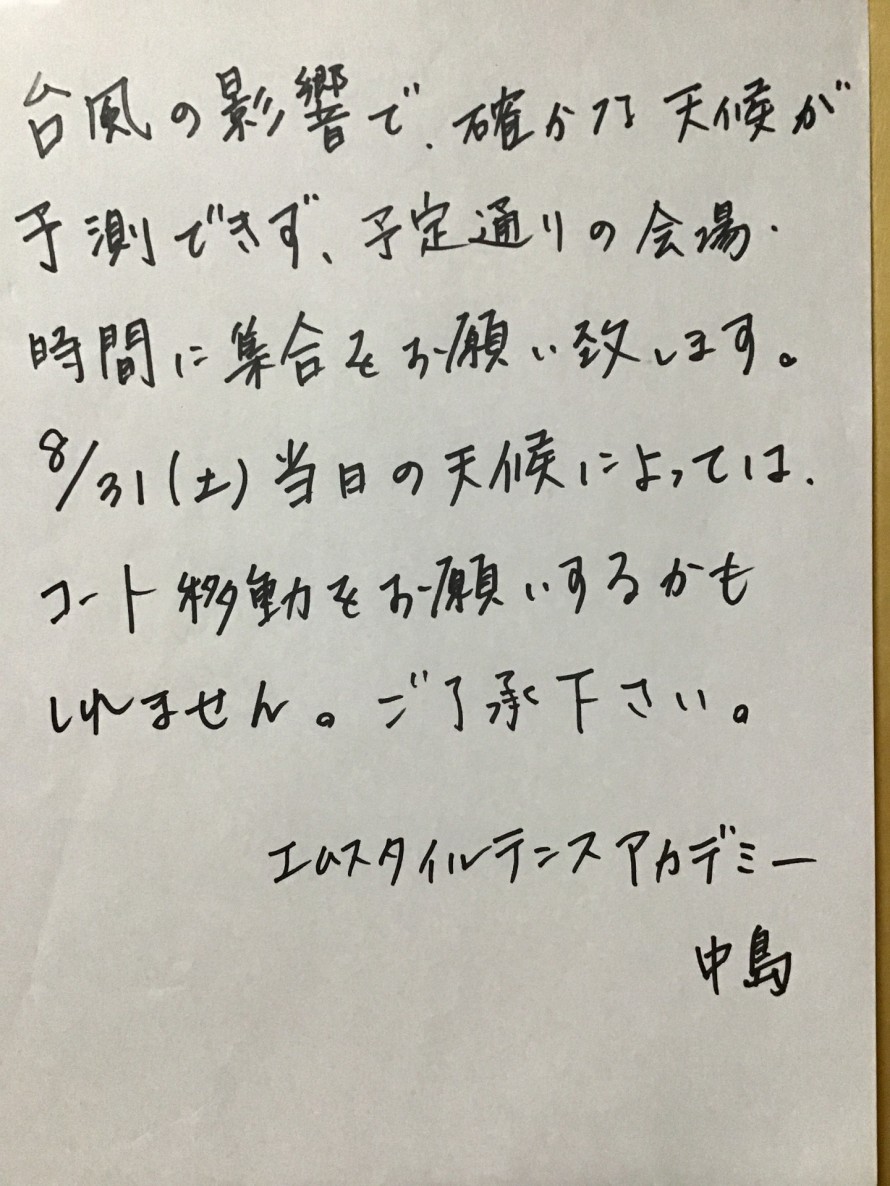 台風の影響で、確かな天候が
予測できず、予定通りの会場・
時間に集合をお願い致します。
8/31(土)当日の天候によっては、
コート移動をお願いするかも
しれません。ご了承下さい。
エムスタイルテニスアカデミー
中島